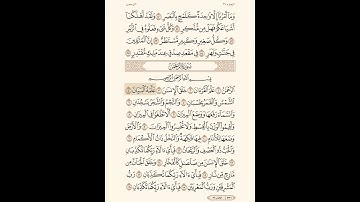 وَمَآ أَمْرُنَآ إِلَّا وَٰحِدَةٌ كَلَمْحٍۭ بِٱلْبَصَرِ ٥٠ وَلَقَدْ أَهْلَكْنَآ
أَشْيَاعَكُمْ فَهَلْ مِن مُّدَّكِرٍ ٥١ وَكُلُّ شَىْءٍ فَعَلُوهُ فِى ٱلزُّبُرِ
٥٢ وَكُلُّ صَغِيرٍ وَكَبِيرٍ مُّسْتَطَرٌ ٥٣ إِنَّ ٱلْمُتَّقِينَ
فِى جَنَّٰتٍ وَنَهَرٍ ٥٤ فِى مَقْعَدِ صِدْقٍ عِندَ مَلِيكٍ مُّقْتَدِرٍۭ ٥٥
سُورَةُ الرَّحْمَٰن
بِسْمِ ٱللَّهِ ٱلرَّحْمَٰنِ ٱلرَّحِيمِ
ٱلرَّحْمَٰنُ ١ عَلَّمَ ٱلْقُرْءَانَ ٢ خَلَقَ ٱلْإِنسَٰنَ ٣ عَلَّمَهُ ٱلْبَيَانَ ٤
ٱلشَّمْسُ وَٱلْقَمَرُ بِحُسْبَانٍ ٥ وَٱلنَّجْمُ وَٱلشَّجَرُ يَسْجُدَانِ ٦
وَٱلسَّمَآءَ رَفَعَهَا وَوَضَعَ ٱلْمِيزَانَ ٧ أَلَّا تَطْغَوْا۟ فِى ٱلْمِيزَانِ ٨
وَأَقِيمُوا۟ ٱلْوَزْنَ بِٱلْقِسْطِ وَلَا تُخْسِرُوا۟ ٱلْمِيزَانَ ٩ وَٱلْأَرْضَ
وَضَعَهَا لِلْأَنَامِ ١٠ فِيهَا فَٰكِهَةٌ وَٱلنَّخْلُ ذَاتُ ٱلْأَكْمَامِ ١١
وَٱلْحَبُّ ذُو ٱلْعَصْفِ وَٱلرَّيْحَانُ ١٢ فَبِأَىِّ ءَالَآءِ رَبِّكُمَا تُكَذِّبَانِ ١٣
خَلَقَ ٱلْإِنسَٰنَ مِن صَلْصَٰلٍ كَٱلْفَخَّارِ ١٤ وَخَلَقَ ٱلْجَآنَّ
مِن مَّارِجٍ مِّن نَّارٍ ١٥ فَبِأَىِّ ءَالَآءِ رَبِّكُمَا تُكَذِّبَانِ ١٦
رَبُّ ٱلْمَشْرِقَيْنِ وَرَبُّ ٱلْمَغْرِبَيْنِ ١٧ فَبِأَىِّ ءَالَآءِ رَبِّكُمَا تُكَذِّبَانِ ١٨